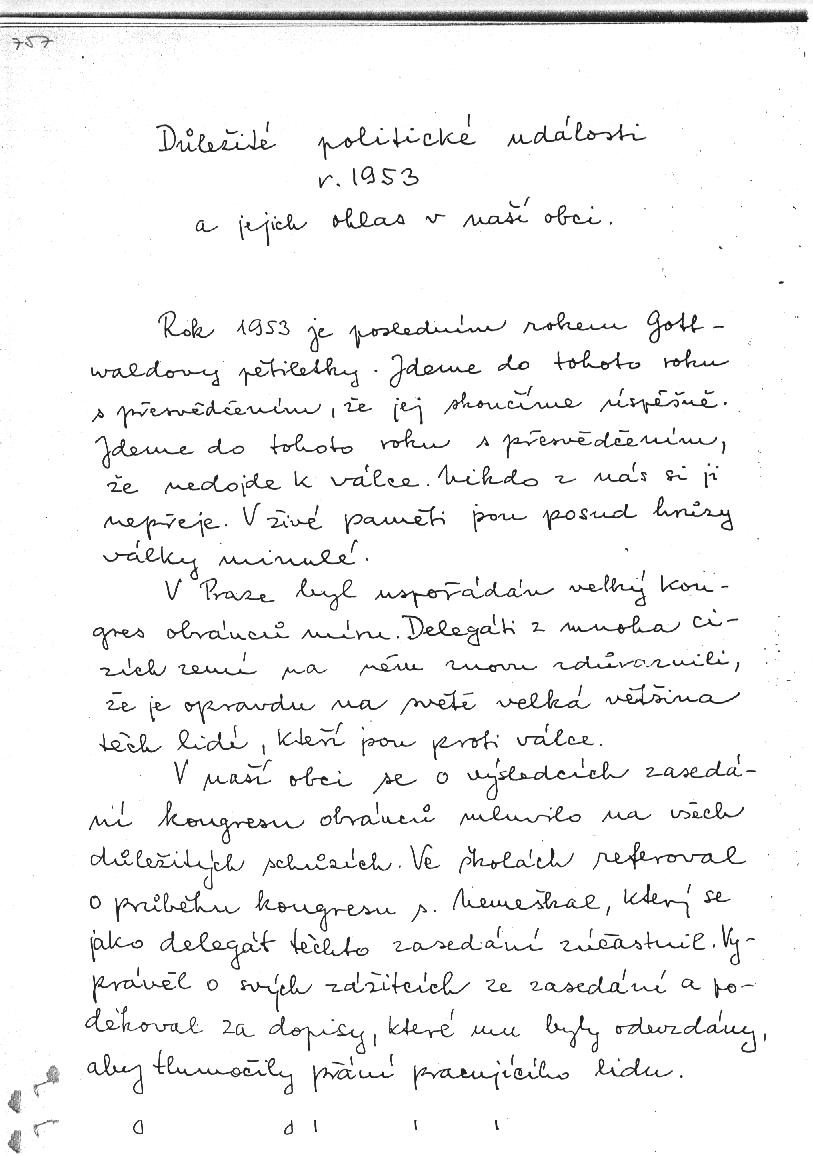 757
Důležité politické události
r. 1953
a jejich ohlas v naší obci.
Rok 1953 je posledním rokem Gott-
waldovy pětiletky. Jdeme do tohoto roku
s přesvědčením, že jej skončíme úspěšně.
Jdeme do tohoto roku s přesvědčením,
že nedojde k válce. Nikdo z nás si ji
nepřeje. V živé paměti jsou posud hrůzy
války minulé.
V Praze byl uspořádán velký kon-
gres obránců míru. Delegáti z mnoha ci-
zích zemí na něm znovu zdůraznili,
že je opravdu na světě velká většina
těch lidí, kteří jsou proti válce.
V naší obci se o výsledcích zasedá-
ní kongresu obránců mluvilo na všech
důležitých schůzích. Ve školách referoval
o průběhu kongresu s. Nemeškal, který se
jako delegát těchto zasedání zúčastnil. Vy-
právěl o svých zážitcích ze zasedání a po-
děkoval za dopisy, které mu byly odevzdány,
aby tlumočily přání pracujícího lidu.